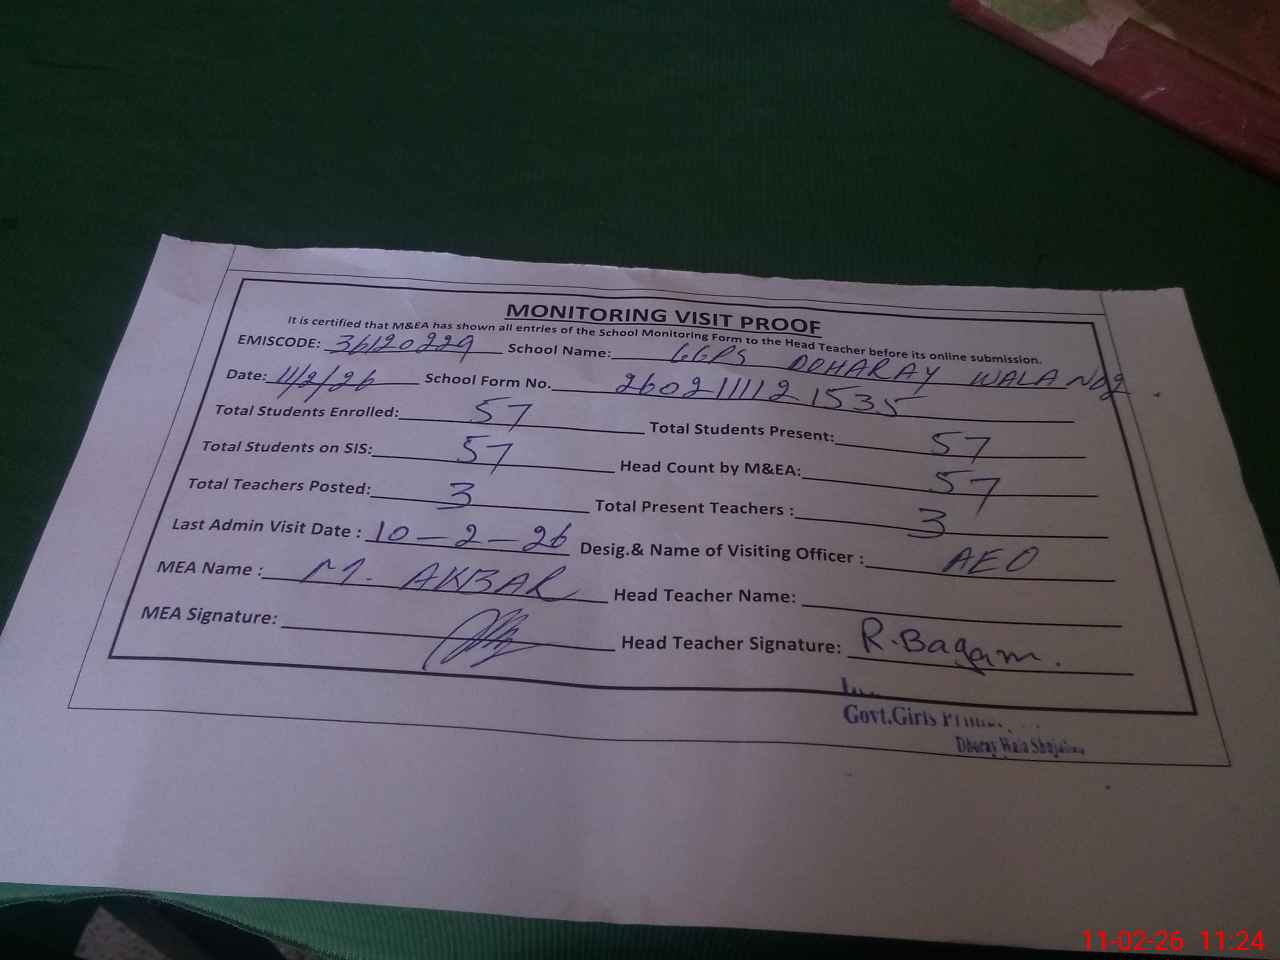 MONITORING VISIT PROOF
It is certified that M&EA has shown all entries of the School Monitoring Form to the Head Teacher before its online submission.
EMISCODE: 36120229 School Name: GGPS DOHARAY WALA NO2
Date: 11/2/26 School Form No. 2602111121535
Total Students Enrolled: 57 Total Students Present: 57
Total Students on SIS: 57 Head Count by M&EA: 57
Total Teachers Posted: 3 Total Present Teachers : 3
Last Admin Visit Date : 10-2-26 Desig.& Name of Visiting Officer : AEO
MEA Name : M. AKBAR Head Teacher Name:
MEA Signature: Head Teacher Signature: R.Bagam.
Govt.Girls
Wala
11-02-26 11:24